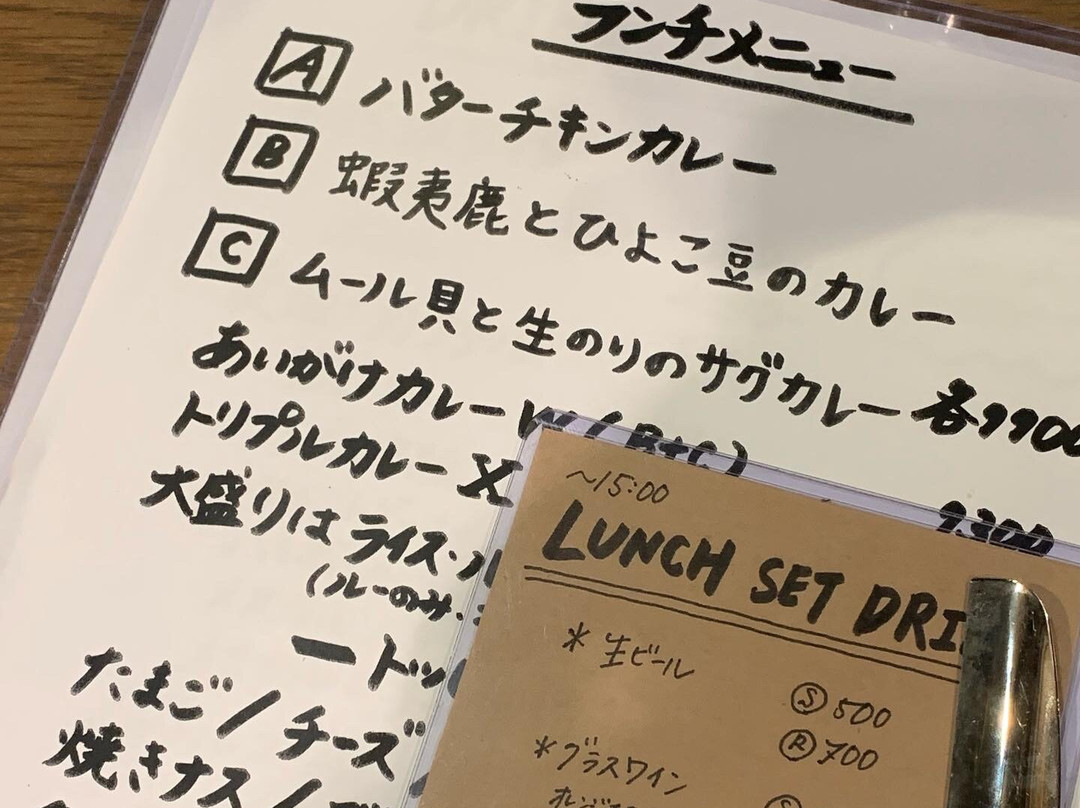 ランチメニュー
A バターチキンカレー
B 蝦夷鹿とひよこ豆のカレー
C ムール貝と生のりのサグカレー 各990
あいがけカレー W (B+C)
トリプルカレー X
1300
大盛りは ライス・ル
(ルーのみ.
ートッ
たまご / チーズ
焼きナス /
~15:00
LUNCH SET DRI
* 生ビール
Ⓢ 500
Ⓡ 700
* グラスワイン
Ⓢ
オレンジ